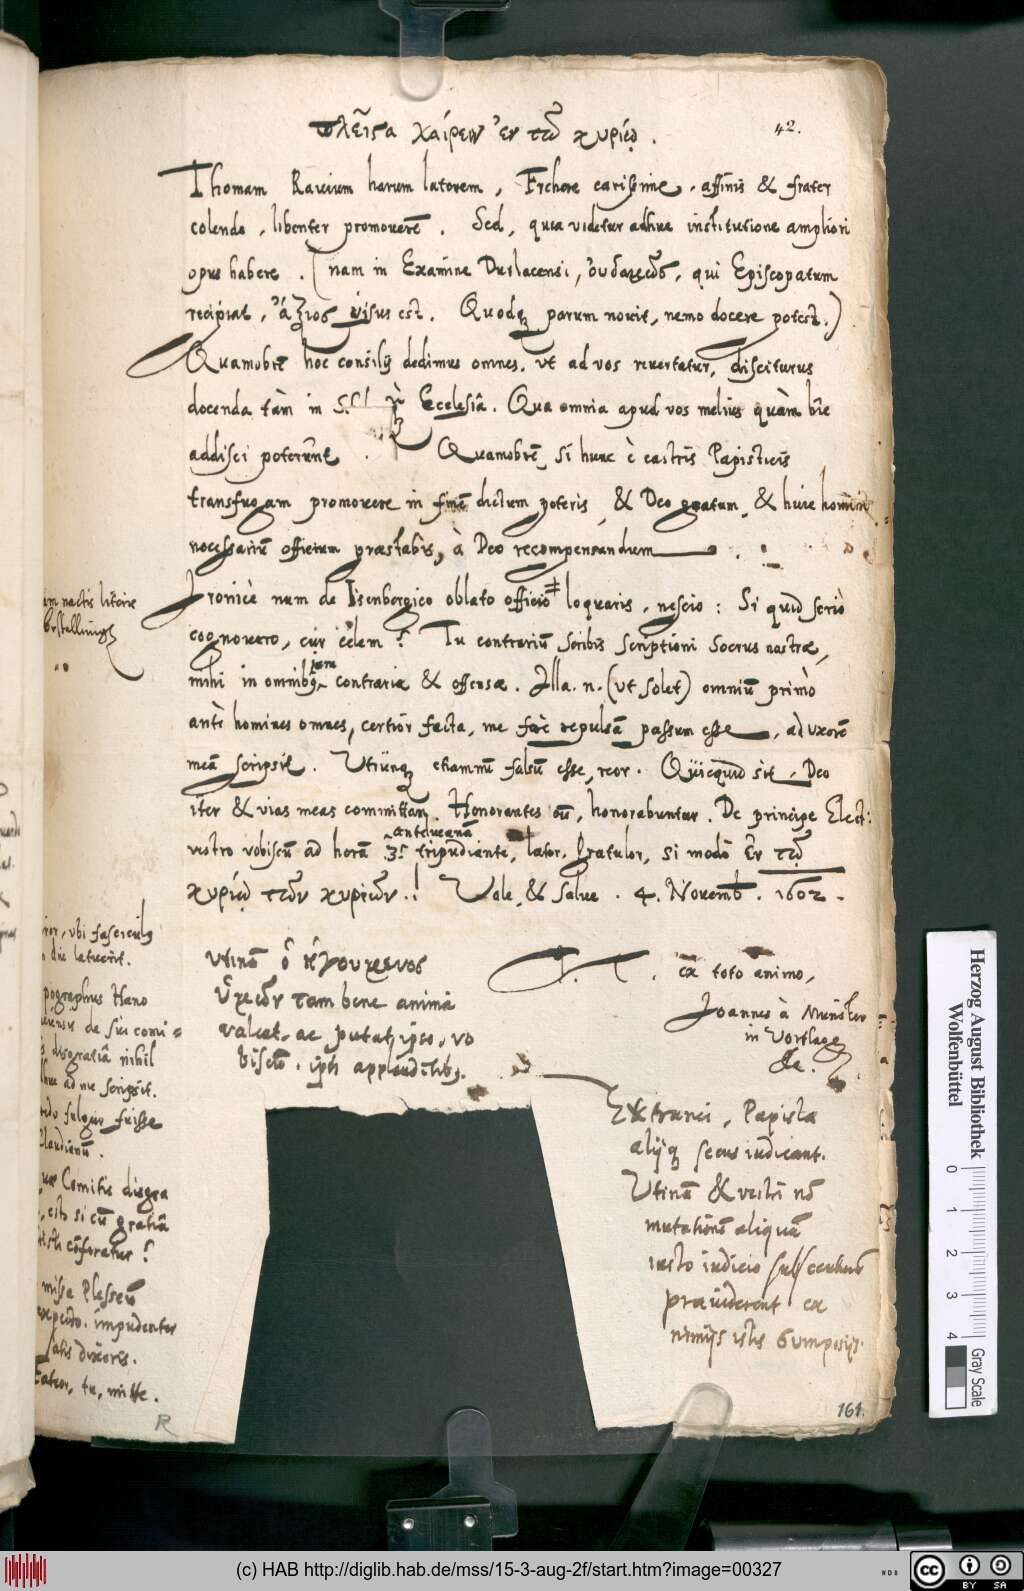 πλεῖστα χαίρειν ἐν τῷ κυρίῳ.
42.
Thomam Rauium harum latorem, Frehere carissime, affinis & frater
colende, libenter promouerē. Sed, quia videtur adhuc institutione ampliori
opus habere. (nam in Examine Durlacensi, οὐδαμῶς, qui Episcopatum
recipiat, ἄξιος visus est. Quodq parum nouit, nemo docere potest.)
Quamobrē hoc consilij dedimus omnes, vt ad vos reuertatur, disciturus
docenda tàm in Ecclesiâ. Qua omnia apud vos melius quàm
addisci poterunt. Quamobrē, si hunc è castris Papisticis
transfugam promouere in finē dictum poteris, & Deo gratum, & huic
necessariū officium præstabis, à Deo recompensandum.
Ironicè num de Isenborgico oblato officio loquaris, nescio: Si quid seriò
cognouero, cur celem? Tu contrariū scribis scriptioni socrus nostræ,
mihi in omnibq iam contrariæ & offensæ. Illa. n. (vt solet) omniū primò
antè homines omnes, certior facta, me repulsā passum esse, ad vxorē
meā scripsit. Vtrunq etiamnū falsū esse, reor. Quicquid sit, Deo
iter & vias meas committam. Honorantes eū, honorabuntur. De principe Elect:
vestro vobiscū ad horā 3. antelucanā tripudiante, lætor. Gratulor, si modò ἐν τῷ
κυρίῳ τῶν κυρίων.! Vale, & salue. 4. Novemb. 1602.
vtinā ὁ ἡγούμενος
ὑμῶν tam bene animā
valeat, ac putat ipse, vo
biscū. iph applaudētibq.
T. T. ex toto animo,
Joannes à Münster
in Vortlage
&c.
Extranei, Papistæ
alijq secus iudicant.
Vtinā & vestri nō
mutationē aliquā
iusto iudicio
præuiderent ex
nimijs istis sumptijs.
am nactis litoris
bestallung
ior, vbi fasciculq
die latuerit.
pographus Hano
uiensis de sui comi=
s disgratiâ nihil
dhuc ad me scripsit.
redo fulgur fuisse
Claudianū.
uæ Comitis disgra
, esto si cū gratiâ
isti cōferatur?
missa Plesseū
expecto. impudenter
satis dixeris.
Fateor, tu, mitte.
R
161.
Herzog August Bibliothek
Wolfenbüttel
0 1 2 3 4 Gray Scale
(c) HAB http://diglib.hab.de/mss/15-3-aug-2f/start.htm?image=00327
cc BY SA